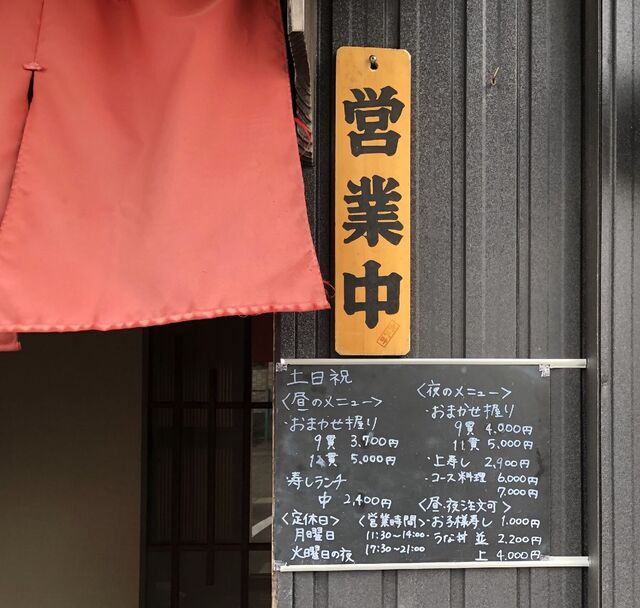 営業中
土日祝
〈昼のメニュー〉
・おまかせ握り
9貫 3,700円
12貫 5,000円
寿しランチ
中 2,400円
〈定休日〉
月曜日
火曜日の夜
〈営業時間〉
11:30-14:00
17:30-21:00
〈夜のメニュー〉
・おまかせ握り
9貫 4,000円
11貫 5,000円
・上寿し 2,900円
・コース料理 6,000円
7,000円
〈昼・夜注文可〉
・お子様寿し 1,000円
・うな丼 並 2,200円
上 4,000円